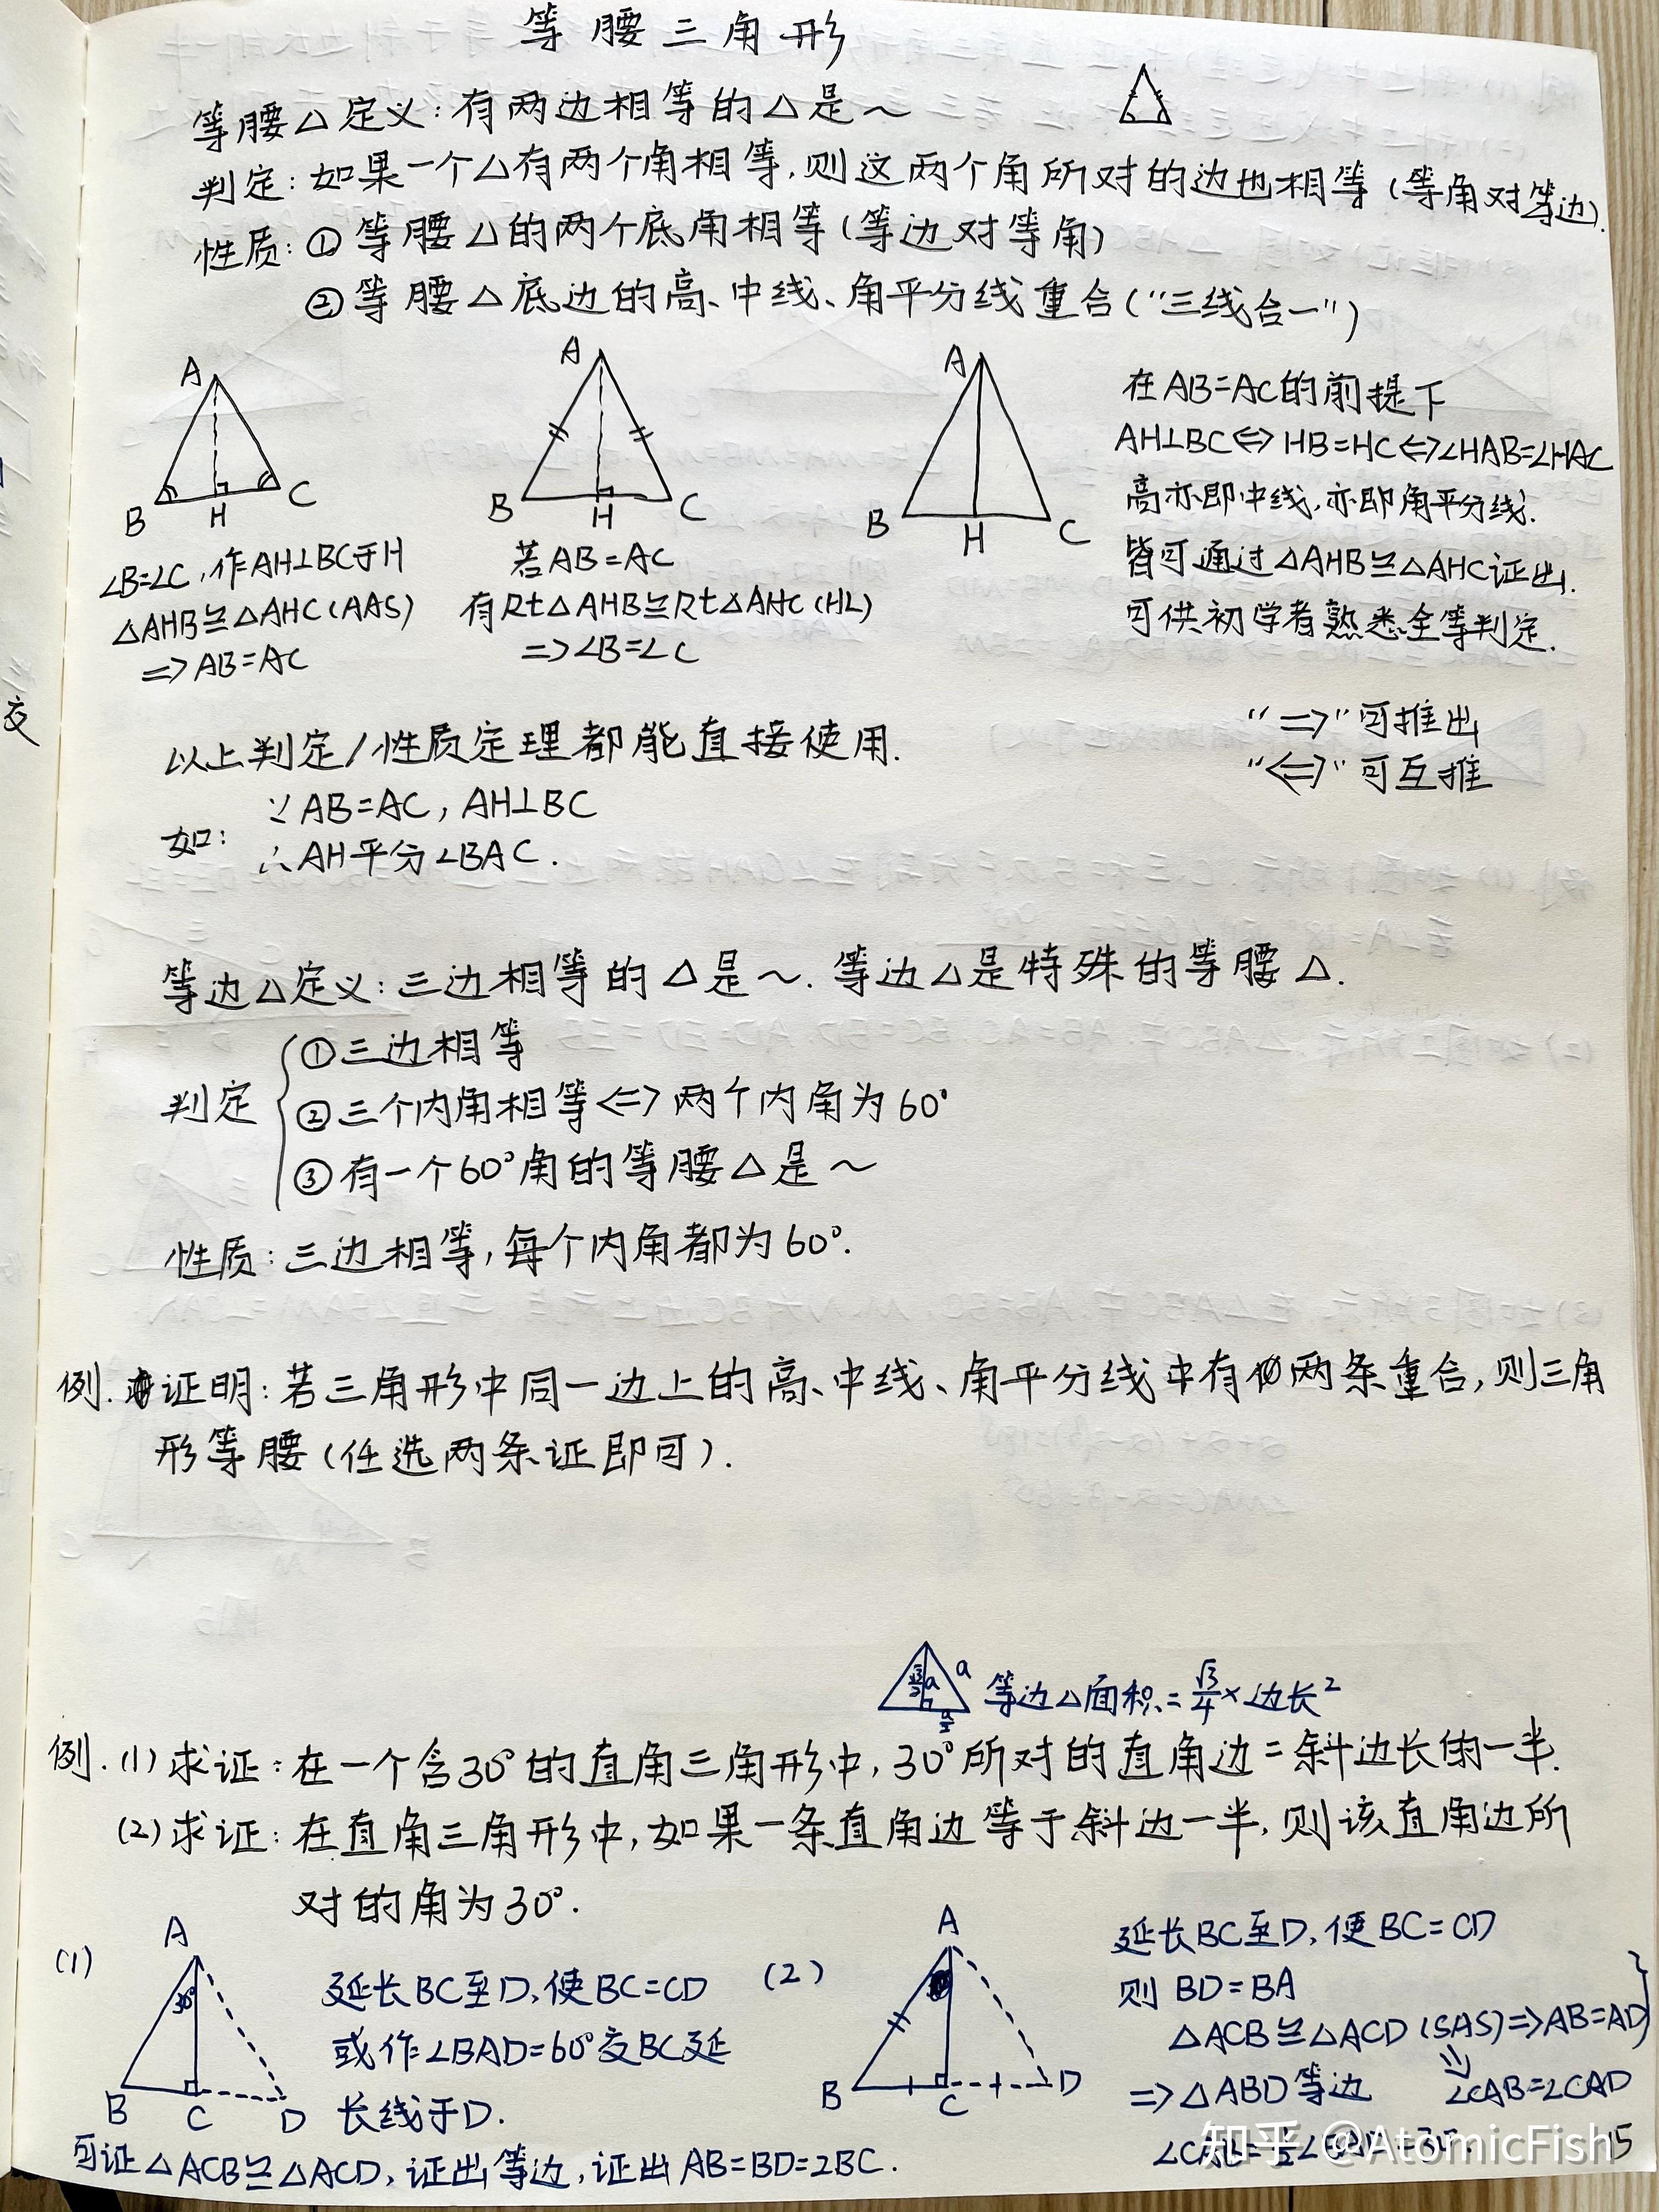 等腰三角形
等腰△定义:有两边相等的△是~
判定:如果一个△有两个角相等,则这两个角所对的边也相等(等角对等边).
性质:①等腰△的两个底角相等(等边对等角)
②等腰△底边的高、中线、角平分线重合("三线合一")
A
B
H
C
∠B=∠C,作AH⊥BC于H
△AHB≌△AHC(AAS)
=>AB=AC
A
B
H
C
若AB=AC
有Rt△AHB≌Rt△AHC(HL)
=>∠B=∠C
A
B
H
C
在AB=AC的前提下
AH⊥BC<=>HB=HC<=>∠HAB=∠HAC
高亦即中线,亦即角平分线.
皆可通过△AHB≌△AHC证出.
可供初学者熟悉全等判定.
"=>"可推出
"<=>"可互推
以上判定/性质定理都能直接使用.
如:
∵AB=AC,AH⊥BC
∴AH平分∠BAC.
等边△定义:三边相等的△是~.等边△是特殊的等腰△.
判定
①三边相等
②三个内角相等<=>两个内角为60°
③有一个60°角的等腰△是~
性质:三边相等,每个内角都为60°.
例.证明:若三角形中同一边上的高、中线、角平分线中有两条重合,则三角
形等腰(任选两条证即可).
a
√3/2 a
a/2
等边△面积=√3/4×边长²
例.(1)求证:在一个含30°的直角三角形中,30°所对的直角边=斜边长的一半.
(2)求证:在直角三角形中,如果一条直角边等于斜边一半,则该直角边所
对的角为30°.
(1)
A
30°
B
C
D
延长BC至D,使BC=CD
或作∠BAD=60°交BC延
长线于D.
可证△ACB≌△ACD,证出等边,证出AB=BD=2BC.
(2)
A
B
C
D
延长BC至D,使BC=CD
则BD=BA
△ACB≌△ACD(SAS)=>AB=AD
=>△ABD等边
∠CAB=∠CAD
15
知乎 @AtomicFish
交